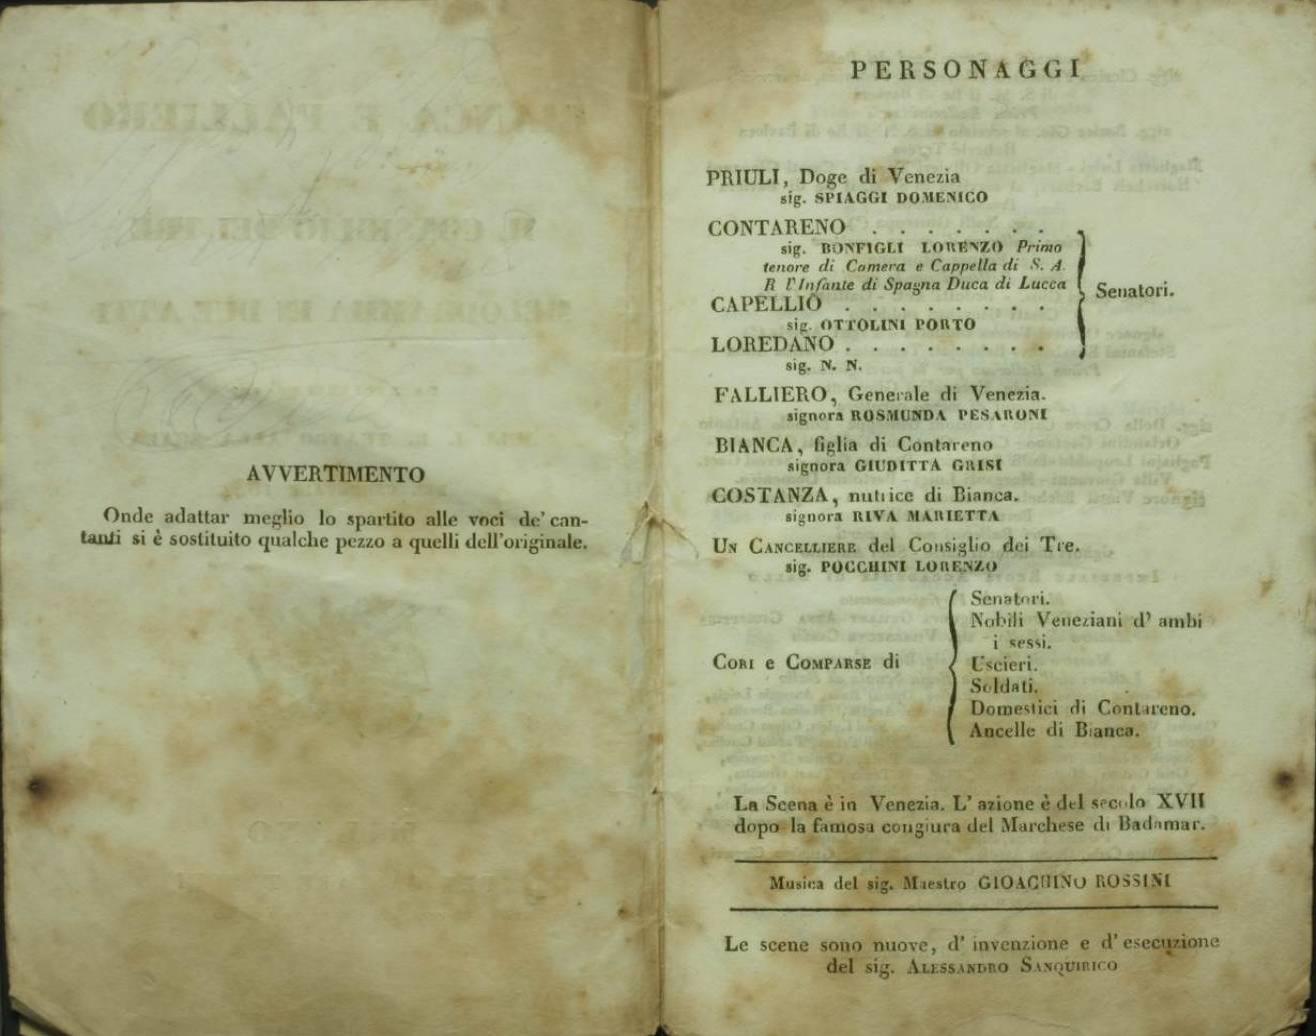 AVVERTIMENTO
Onde adattar meglio lo spartito alle voci de' can-
tanti si è sostituito qualche pezzo a quelli dell'originale.
PERSONAGGI
PRIULI, Doge di Venezia
sig. SPIAGGI DOMENICO
CONTARENO . . . . . . .
sig. BONFIGLI LORENZO Primo
tenore di Camera e Cappella di S. A.
R l'Infante di Spagna Duca di Lucca
Senatori.
CAPELLIO . . . . . . . .
sig. OTTOLINI PORTO
LOREDANO . . . . . . . .
sig. N. N.
FALLIERO, Generale di Venezia.
signora ROSMUNDA PESARONI
BIANCA, figlia di Contareno
signora GIUDITTA GRISI
COSTANZA, nutrice di Bianca.
signora RIVA MARIETTA
UN CANCELLIERE del Consiglio dei Tre.
sig. POCCHINI LORENZO
CORI e COMPARSE di
Senatori.
Nobili Veneziani d' ambi
i sessi.
Uscieri.
Soldati.
Domestici di Contareno.
Ancelle di Bianca.
La Scena è in Venezia. L' azione è del secolo XVII
dopo la famosa congiura del Marchese di Badamar.
Musica del sig. Maestro GIOACHINO ROSSINI
Le scene sono nuove, d' invenzione e d' esecuzione
del sig. ALESSANDRO SANQUIRICO